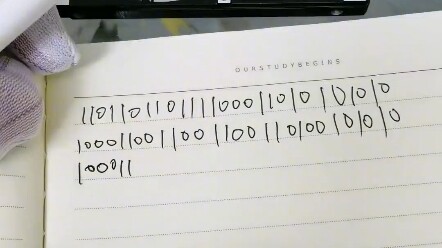 OURSTUDYBEGINS
1101101101111000110101010
10001100110011001101001010
100011